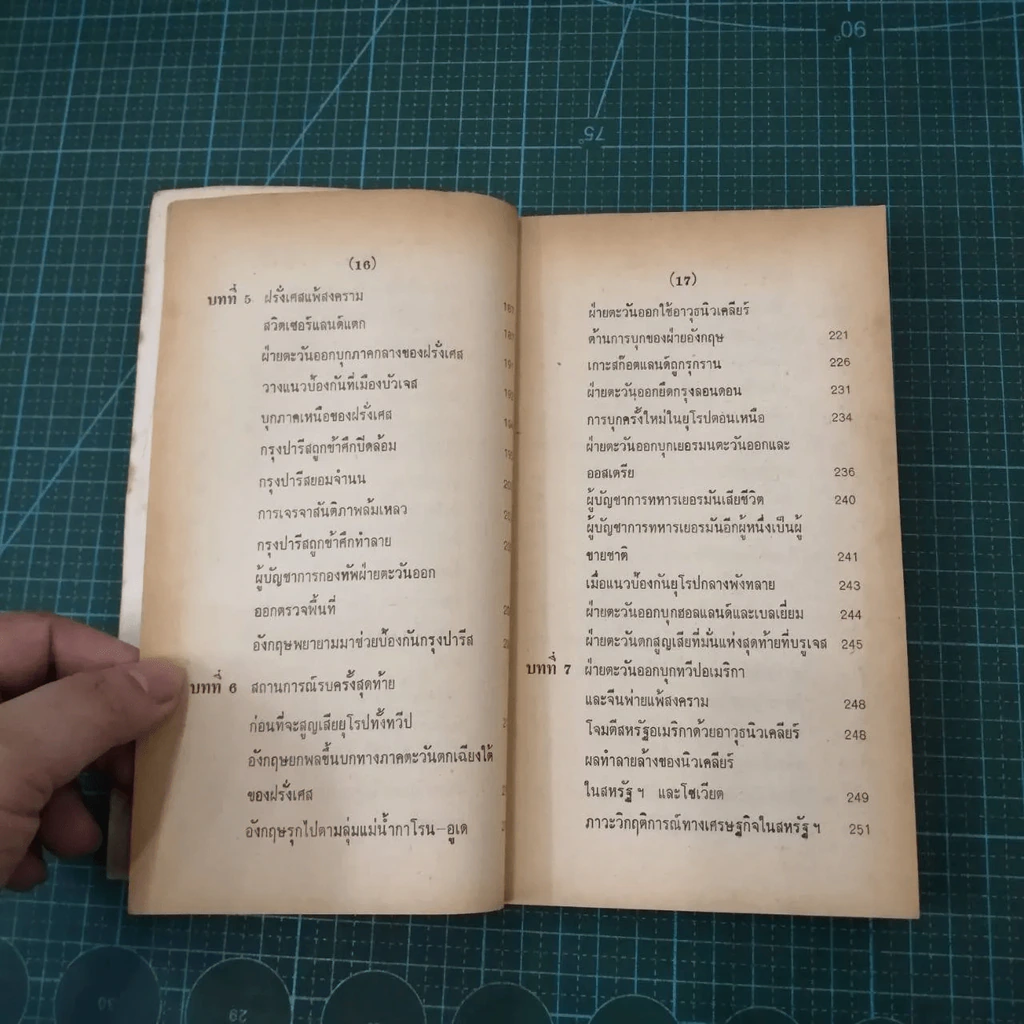 90°
75°
(16)
บทที่ 5 ฝรั่งเศสแพ้สงคราม
สวิตเซอร์แลนด์แตก
ฝ่ายตะวันออกบุกภาคกลางของฝรั่งเศส
วางแนวป้องกันที่เมืองบัวเจส
บุกภาคเหนือของฝรั่งเศส
กรุงปารีสถูกข้าศึกปิดล้อม
กรุงปารีสยอมจำนน
การเจรจาสันติภาพล้มเหลว
กรุงปารีสถูกข้าศึกทำลาย
ผู้บัญชาการกองทัพฝ่ายตะวันออก
ออกตรวจพื้นที่
อังกฤษพยายามมาช่วยป้องกันกรุงปารีส
บทที่ 6 สถานการณ์รบครั้งสุดท้าย
ก่อนที่จะสูญเสียยุโรปทั้งทวีป
อังกฤษยกพลขึ้นบกทางภาคตะวันตกเฉียงใต้
ของฝรั่งเศส
อังกฤษรุกไปตามลุ่มแม่น้ำกาโรน-อูเด
(17)
ฝ่ายตะวันออกใช้อาวุธนิวเคลียร์
ต้านการบุกของฝ่ายอังกฤษ 221
เกาะสก๊อตแลนด์ถูกรุกราน 226
ฝ่ายตะวันออกยึดกรุงลอนดอน 231
การบุกครั้งใหม่ในยุโรปตอนเหนือ 234
ฝ่ายตะวันออกบุกเยอรมนตะวันออกและ
ออสเตรีย 236
ผู้บัญชาการทหารเยอรมันเสียชีวิต 240
ผู้บัญชาการทหารเยอรมันอีกผู้หนึ่งเป็นผู้
ขายชาติ 241
เมื่อแนวป้องกันยุโรปกลางพังทลาย 243
ฝ่ายตะวันออกบุกฮอลแลนด์และเบลเยี่ยม 244
ฝ่ายตะวันตกสูญเสียที่มั่นแห่งสุดท้ายที่บรูเจส 245
บทที่ 7 ฝ่ายตะวันออกบุกทวีปอเมริกา
และจีนพ่ายแพ้สงคราม 248
โจมตีสหรัฐอเมริกาด้วยอาวุธนิวเคลียร์ 248
ผลทำลายล้างของนิวเคลียร์
ในสหรัฐ ฯ และโซเวียต 249
ภาวะวิกฤติการณ์ทางเศรษฐกิจในสหรัฐ ฯ 251
30
29